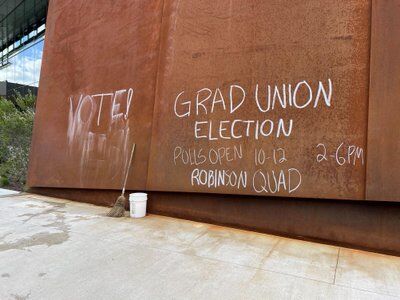 VOTE!
GRAD UNION
ELECTION
POLLS OPEN 10-12 2-6PM
ROBINSON QUAD